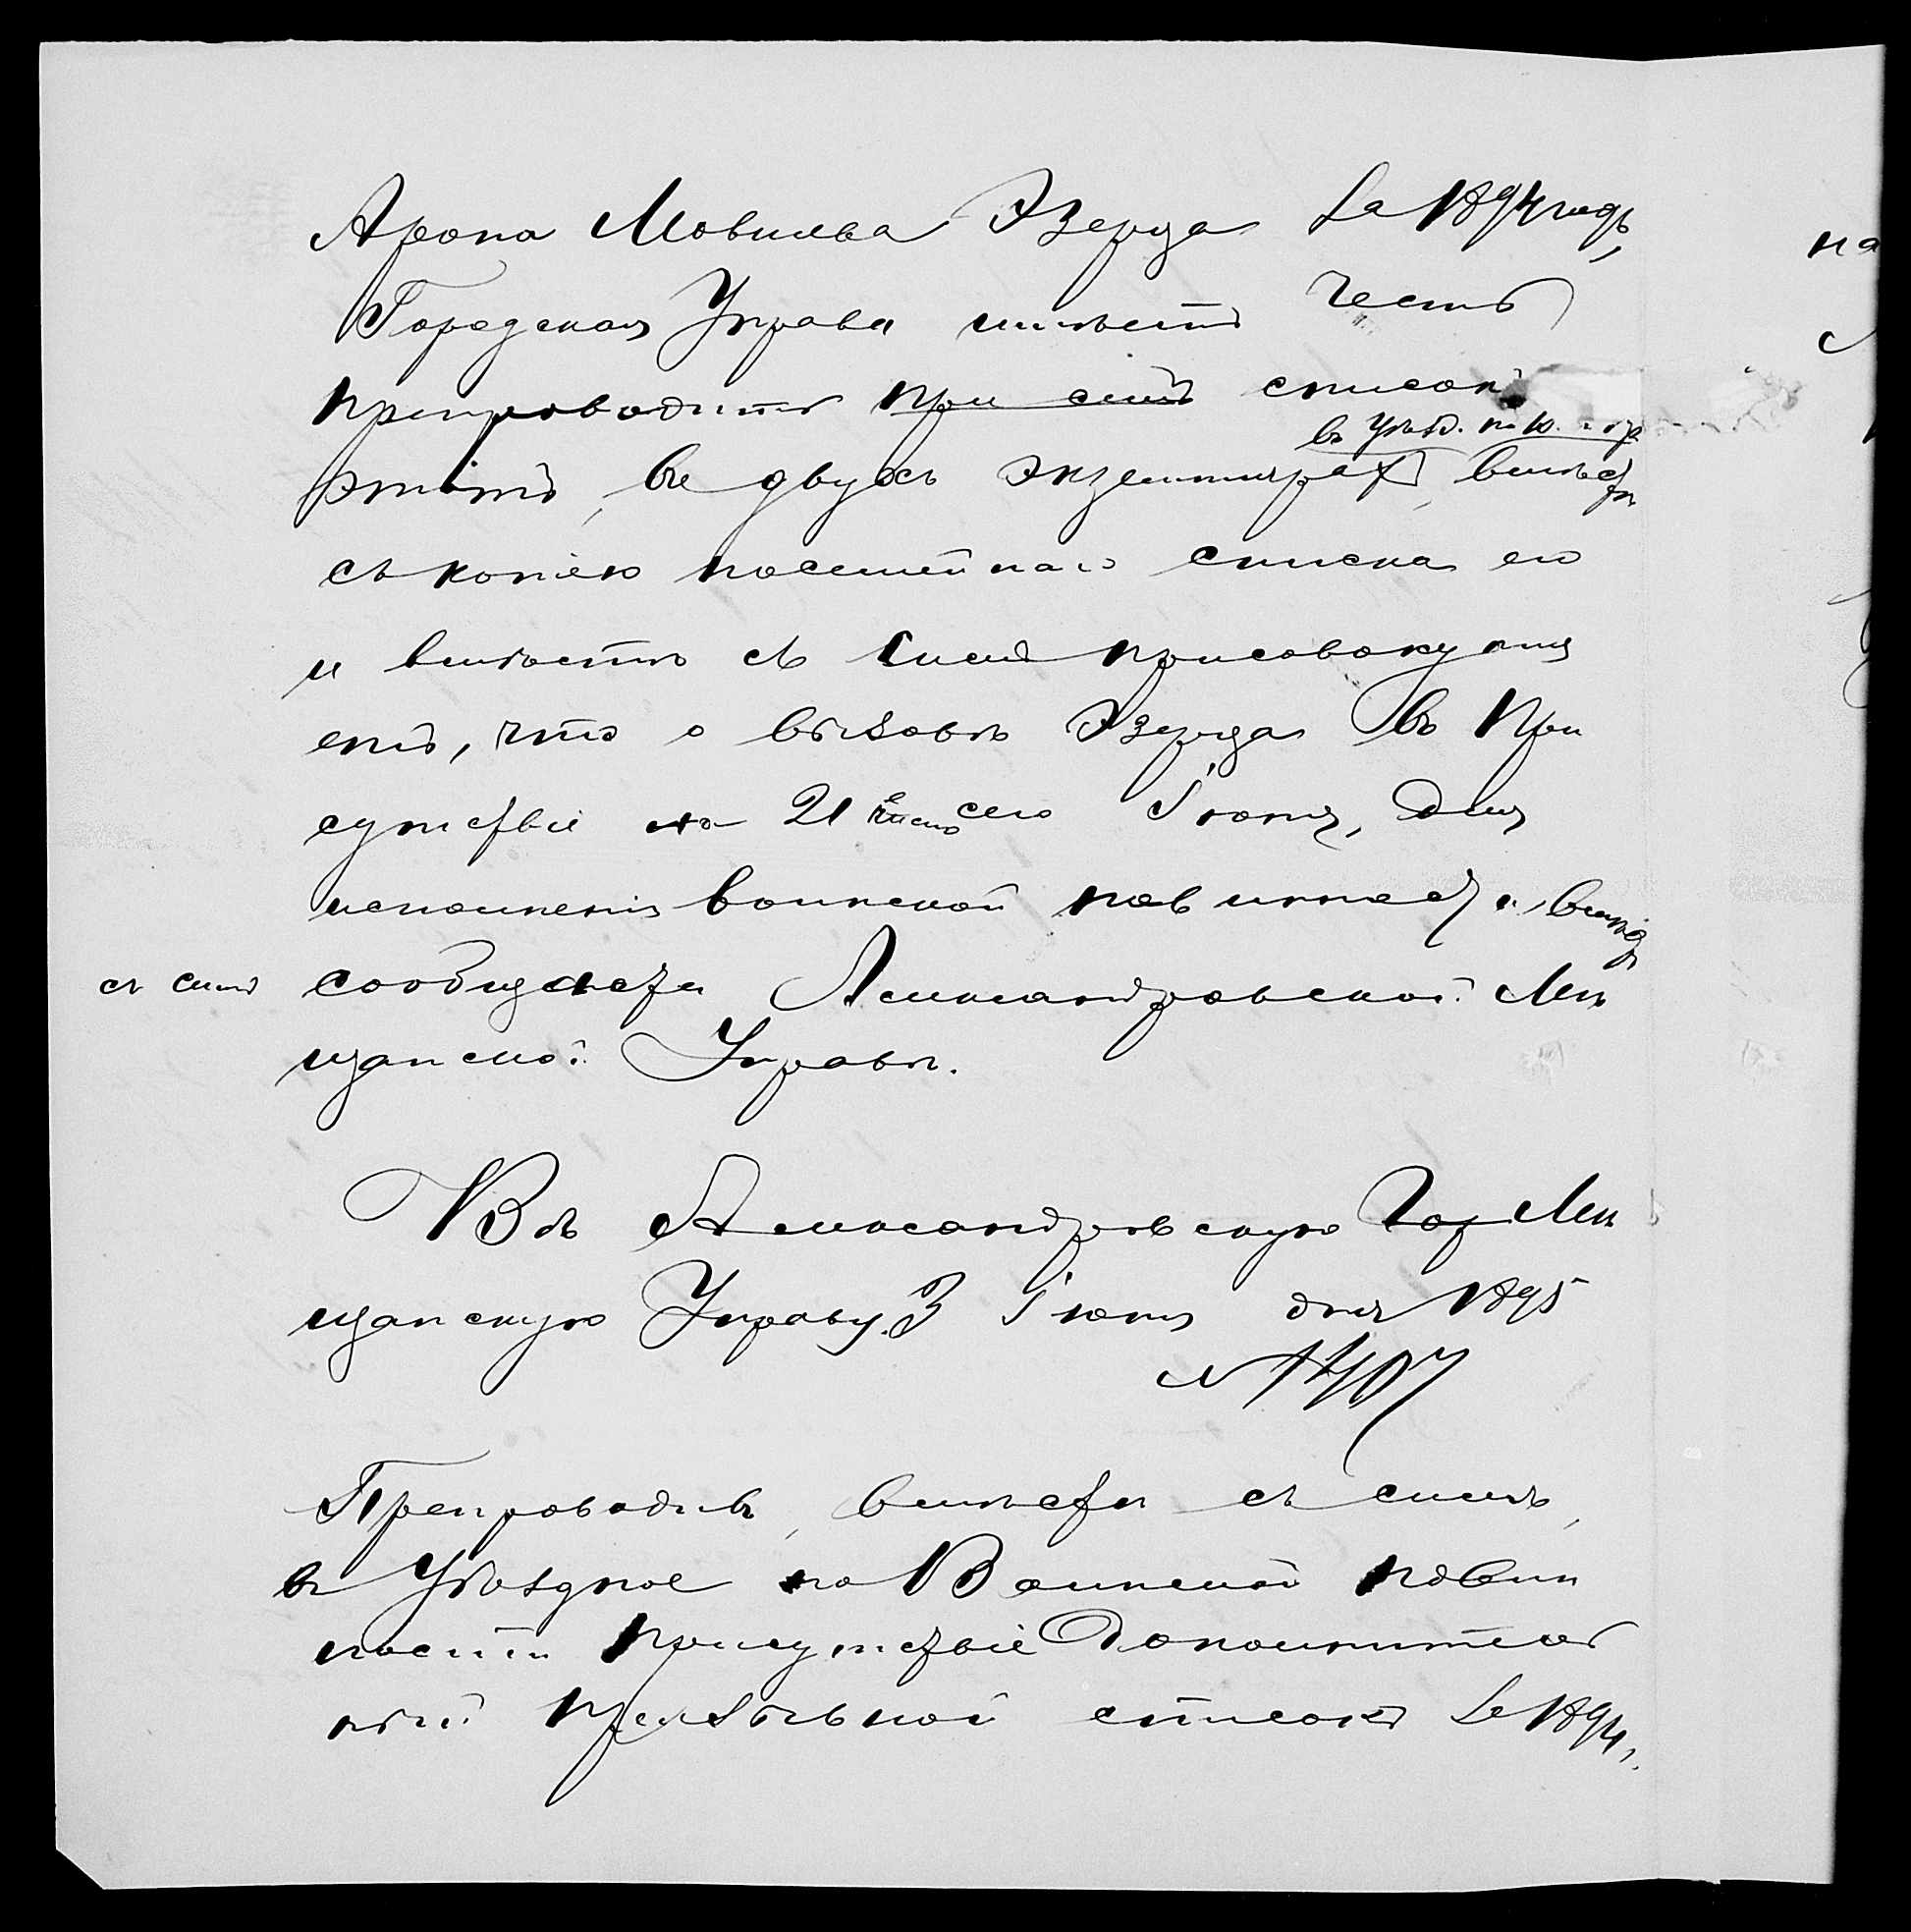 Арона Мовшева Эзерца за 1894 годъ,
Городская Управа имѣетъ честь
препроводить при семъ списокъ
въ Уѣзд. по в. п. пр.
этотъ, въ двухъ экземплярахъ, вмѣстѣ
съ копіею посемейнаго списка его
и вмѣстѣ съ симъ присовокупля
етъ, что о вызовѣ Эзерца въ При
сутствіе на 21 число сего Іюня, для
исполненія воинской повинности, вмѣстѣ
съ симъ сообщается Александровской Мѣ
щанской Управѣ.
Въ Александровскую Гор Мѣ
щанскую Управу. 3 Іюня дня 1895
№ 1407
Препроводивъ, вмѣстѣ съ симъ,
въ Уѣздное по Воинской повин
ности Присутствіе Дополнитель
ный призывной списокъ за 1894 г.